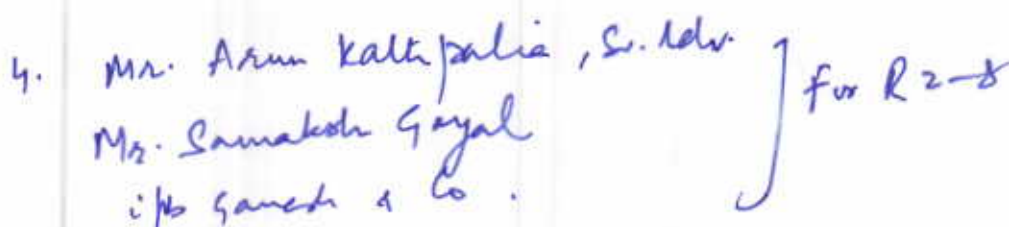 4. Mr. Arun Kathpalia, Sr. Adv.
Mr. Samaksh Goyal
i/b Ganesh & Co.
] For R 2-8